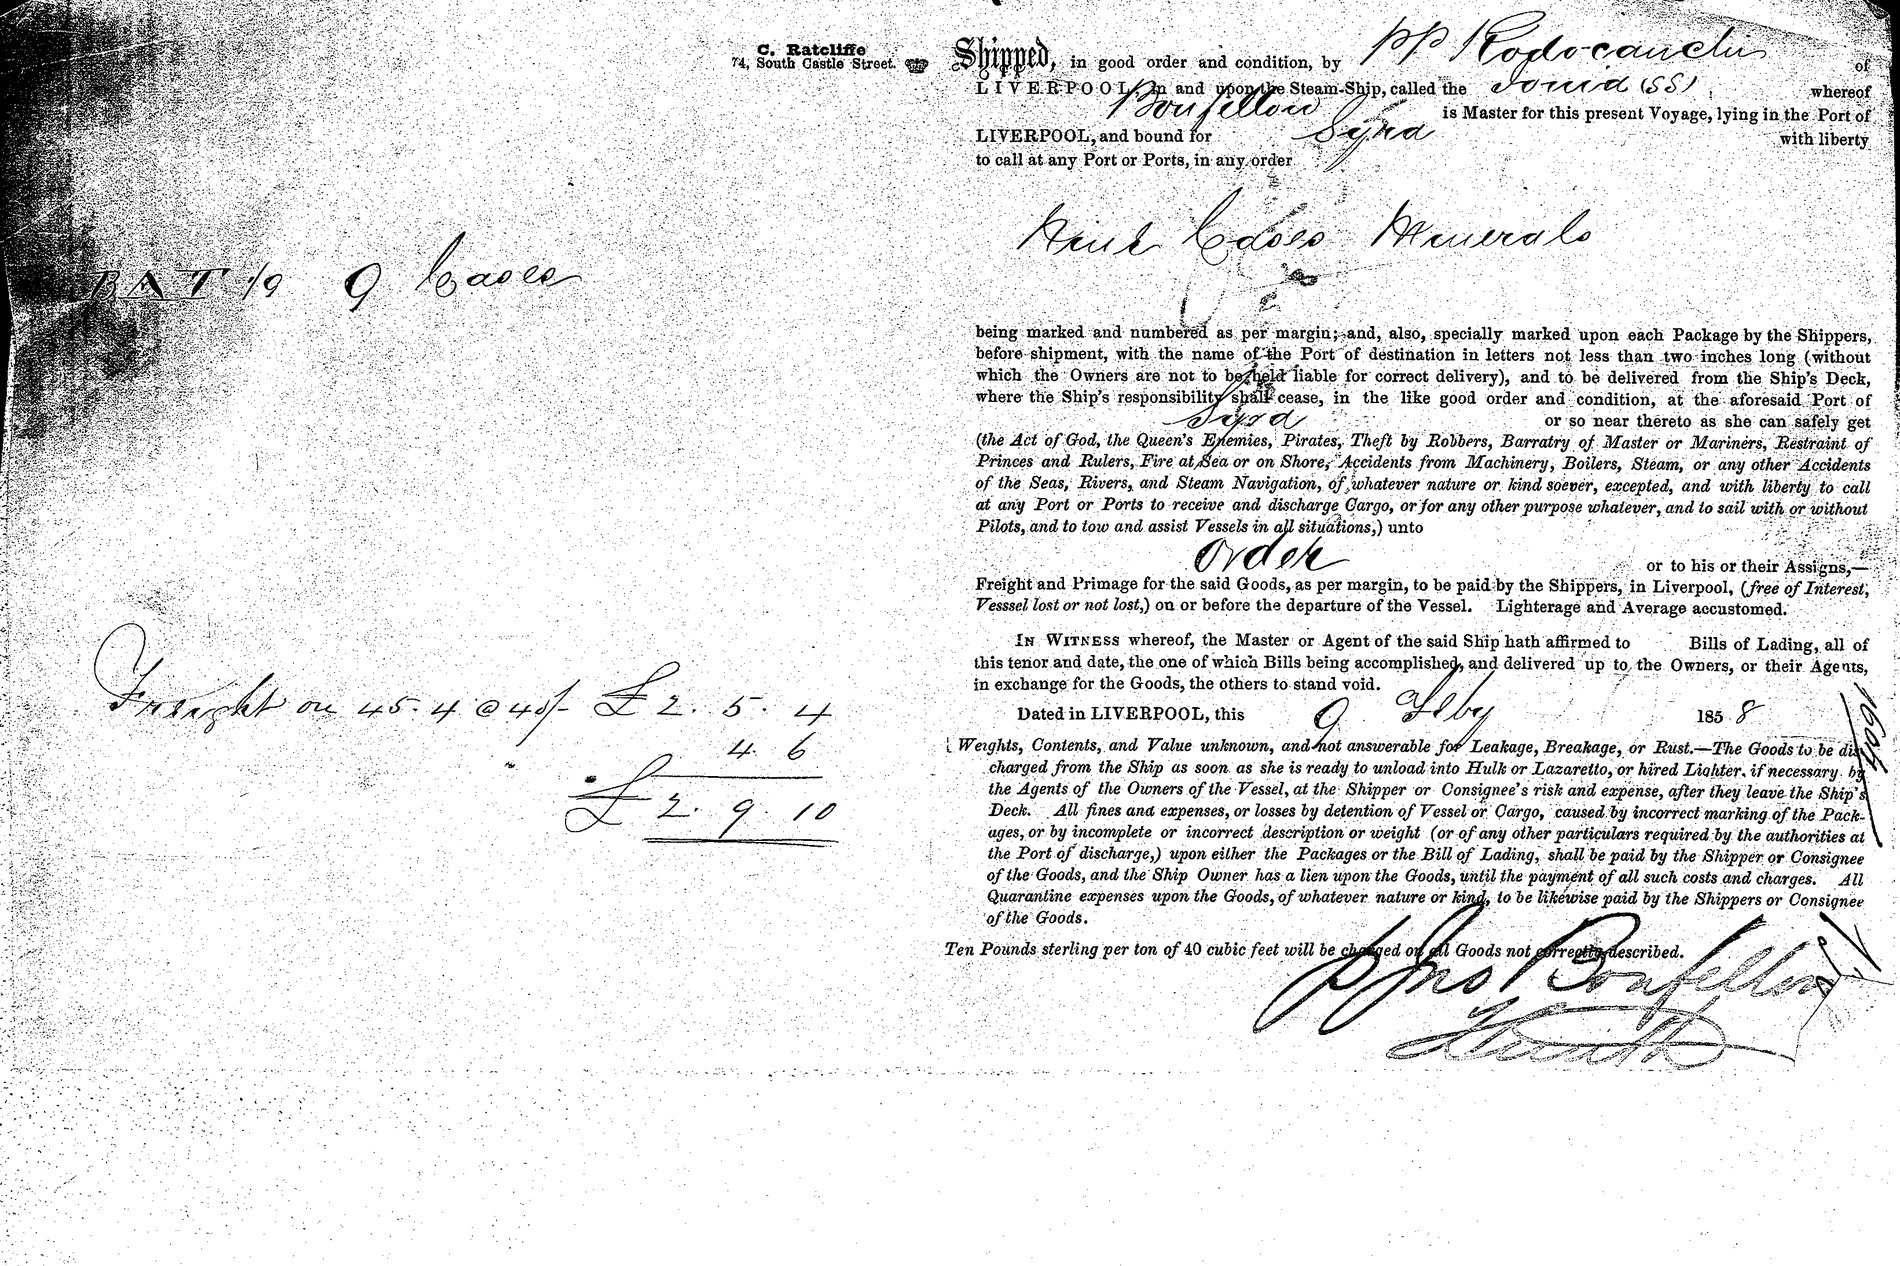 C. Ratcliffe
74, South Castle Street.
Shipped, in good order and condition, by pp Rodocanchi of
LIVERPOOL, in and upon the Steam-Ship, called the Ionia (SS) whereof
Bonfellow is Master for this present Voyage, lying in the Port of
LIVERPOOL, and bound for Syra with liberty
to call at any Port or Ports, in any order
Nine Cases Minerals
BAT 1/9 9 Cases
being marked and numbered as per margin; and, also, specially marked upon each Package by the Shippers,
before shipment, with the name of the Port of destination in letters not less than two inches long (without
which the Owners are not to be held liable for correct delivery), and to be delivered from the Ship's Deck,
where the Ship's responsibility shall cease, in the like good order and condition, at the aforesaid Port of
Syra or so near thereto as she can safely get
(the Act of God, the Queen's Enemies, Pirates, Theft by Robbers, Barratry of Master or Mariners, Restraint of
Princes and Rulers, Fire at Sea or on Shore, Accidents from Machinery, Boilers, Steam, or any other Accidents
of the Seas, Rivers, and Steam Navigation, of whatever nature or kind soever, excepted, and with liberty to call
at any Port or Ports to receive and discharge Cargo, or for any other purpose whatever, and to sail with or without
Pilots, and to tow and assist Vessels in all situations,) unto
Order or to his or their Assigns,—
Freight and Primage for the said Goods, as per margin, to be paid by the Shippers, in Liverpool, (free of Interest,
Vesssel lost or not lost,) on or before the departure of the Vessel. Lighterage and Average accustomed.
IN WITNESS whereof, the Master or Agent of the said Ship hath affirmed to Bills of Lading, all of
this tenor and date, the one of which Bills being accomplished, and delivered up to the Owners, or their Agents,
in exchange for the Goods, the others to stand void.
Freight on 45.4 @ 40/- £2. 5. 4
4. 6
£2. 9. 10
Dated in LIVERPOOL, this 9 Feby 1858
Weights, Contents, and Value unknown, and not answerable for Leakage, Breakage, or Rust.—The Goods to be dis
charged from the Ship as soon as she is ready to unload into Hulk or Lazaretto, or hired Lighter, if necessary by
the Agents of the Owners of the Vessel, at the Shipper or Consignee's risk and expense, after they leave the Ship's
Deck. All fines and expenses, or losses by detention of Vessel or Cargo, caused by incorrect marking of the Pack-
ages, or by incomplete or incorrect description or weight (or of any other particulars required by the authorities at
the Port of discharge,) upon either the Packages or the Bill of Lading, shall be paid by the Shipper or Consignee
of the Goods, and the Ship Owner has a lien upon the Goods, until the payment of all such costs and charges. All
Quarantine expenses upon the Goods, of whatever nature or kind, to be likewise paid by the Shippers or Consignee
of the Goods.
Ten Pounds sterling per ton of 40 cubic feet will be charged on all Goods not correctly described.
p Jno Bonfellow